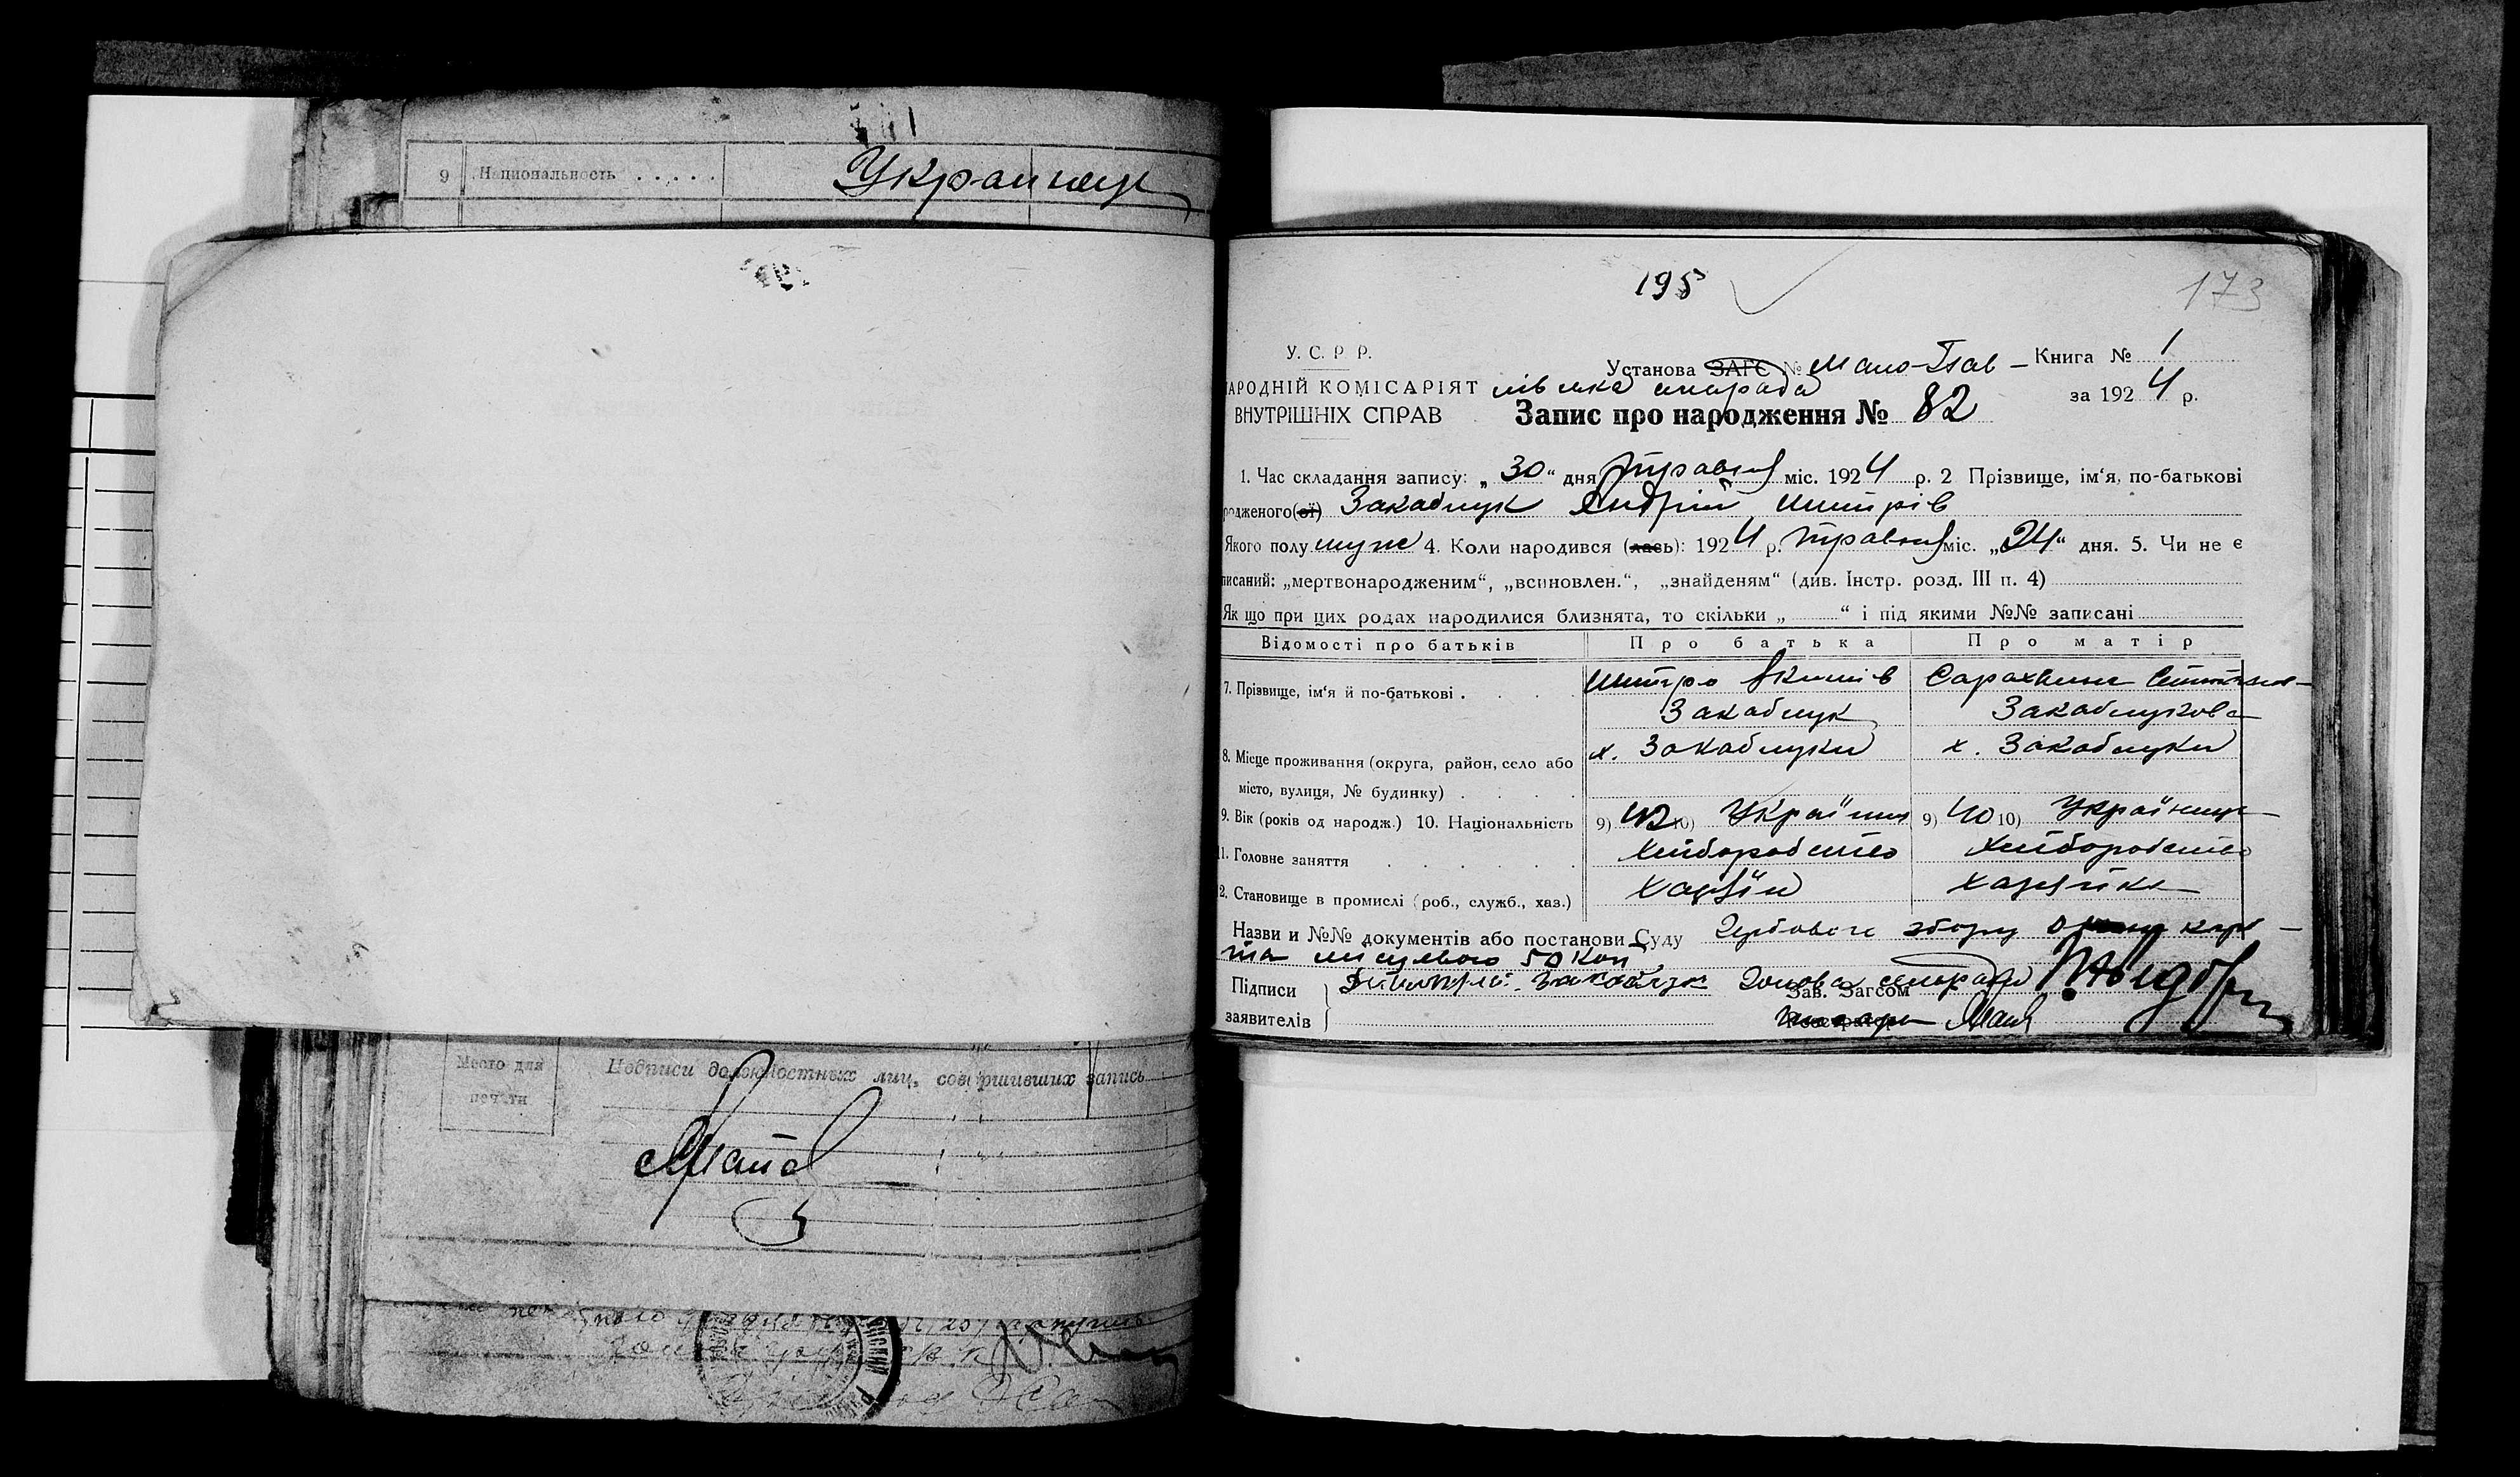 9 Национальность . . . . .
Украинец
195
173
У. С. Р. Р.
Установа ЗАГС № Мало-Пав- Книга № 1
НАРОДНІЙ КОМІСАРІЯТ лівська сільрада
за 1924 р.
ВНУТРІШНІХ СПРАВ Запис про народження № 82
1. Час складання запису: „30“ дня травня міс. 1924 р. 2 Прізвище, ім‘я, по-батькові
родженого(ої) Закаблук Андрій Митрів
Якого полу муж 4. Коли народився (лась): 1924 р. травня міс. „24“ дня. 5. Чи не є
писаний: „мертвонародженим“, „всиновлен.“, „знайденям“ (див. Інстр. розд. III п. 4)
Як що при цих родах народилися близнята, то скільки „ “ і під якими №№ записані
Відомості про батьків Про батька Про матір
7. Прізвище, ім‘я й по-батькові . . . . Митро Якимів
Закаблук Закаблукова
8. Місце проживання (округа, район, село або х. Закаблуки х. Закаблуки
місто, вулиця, № будинку) . . . .
9. Вік (років од народж.) 10. Національність 9) 42 10) Українець 9) 40 10) Українка
11. Головне заняття . . . . . . Хліборобство Хліборобство
12. Становище в промислі (роб., служб., хаз.) хазяїн хазяйка
Назви и №№ документів або постанови Суду Гербового збору один карб-
та місцевого 50 коп
Підписи Закаблук Голова сільради
Зав. Загсом
заявителів
Место для
печати
Подписи должностных лиц, совершивших запись